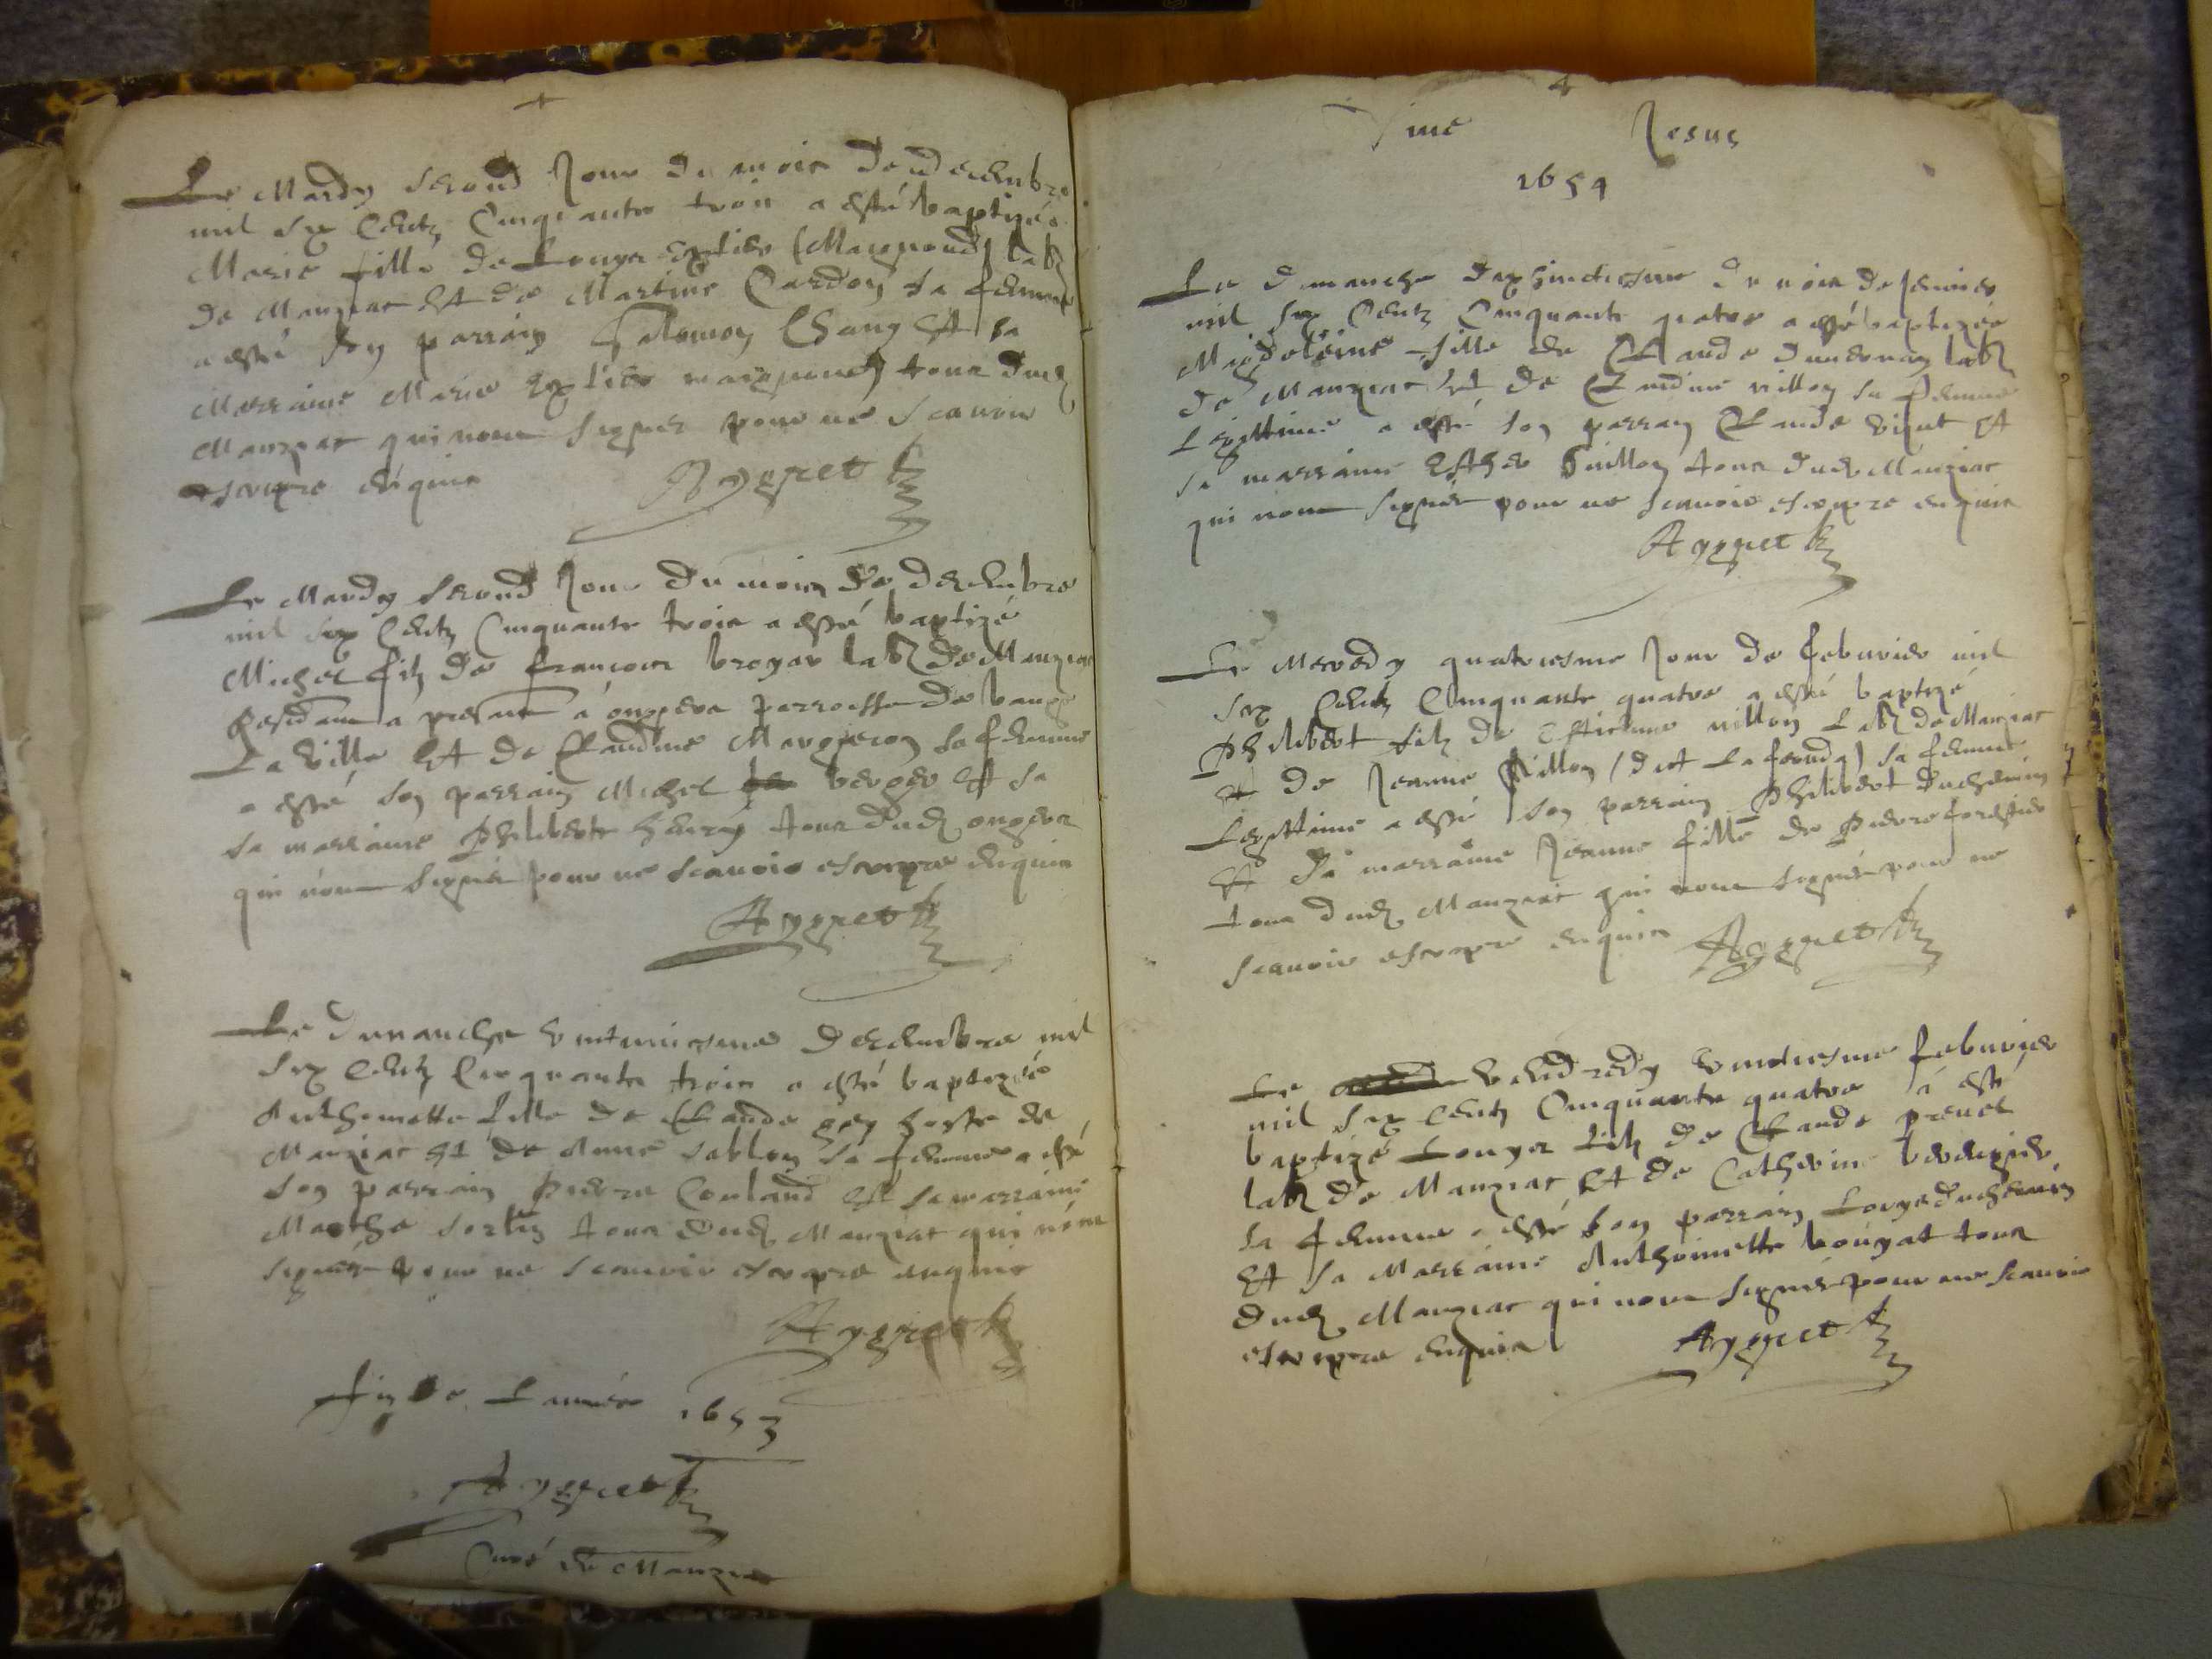 Le Mardy second Jour du mois de decembre
mil six Centz Cinquante trois a esté baptizée
Marie fille de Louys (Maignoud) lab
de Manziat Et de Martine Cardon sa femme
a esté son parrain Salomon Chang Et sa
Marraine Marie maignoud tous dud
Manziat qui nont signés pour ne scavoir
escripre enquis Aygret
Le Mardy second Jour du mois de decembre
mil six Centz Cinquante trois a esté baptizé
Michel filz de françois broyer lab de Manziat
Residant a present a ongera parroisse de baugé
La ville Et de Claudine Maugeron sa femme
a esté son parrain Michel berger Et sa
sa marraine Philiberte henry tous dud ongera
qui nont signés pour ne scavoir escripre enquis
Aygret
Le dimanche decembre mil
six Centz Cinquante trois a esté baptizée
Anthoinette fille de Claude gey hoste de
Manziat Et de Anne sablon sa femme a esté
son parrain Pierre Couland Et sa marraine
Marthe sortin tous dud Manziat qui nont
signés pour ne scavoir escripre enquis
Aygret
fin de Lannée 1653
Aygret
Curé de Manziat
4
Jesus
1654
Le dimanche du mois de Jenvier
mil six Centz Cinquante quatre a esté baptizée
Magdeleine fille de Claude lab
de Manziat Et de Claudine villon sa femme
Legittime a esté son parrain Claude Et
sa marraine Esther Guillon tous dud Manziat
qui nont signés pour ne scavoir escripre enquis
Aygret
Le Mercredy quatriesme Jour de feburier mil
six Centz Cinquante quatre a esté baptizé
Philibert filz de Estienne villon Lab de Manziat
Et de Jeanne Villon (dict La feouda) sa femme
Legittime a esté son parrain Philibert Duchemin
Et sa marraine Jeanne fille de Pierre forestier
tous dud Manziat qui nont signés pour ne
scavoir escripre enquis Aygret
Le vendredy feburier
mil six Centz Cinquante quatre a esté
baptizé Louys filz de Claude prevel
lab de Manziat Et de Catherine
sa femme a esté son parrain Louys duchemin
Et sa Marraine Anthoinette bouyat tous
dud Manziat qui nont signés pour ne scavoir
escripre enquis Aygret